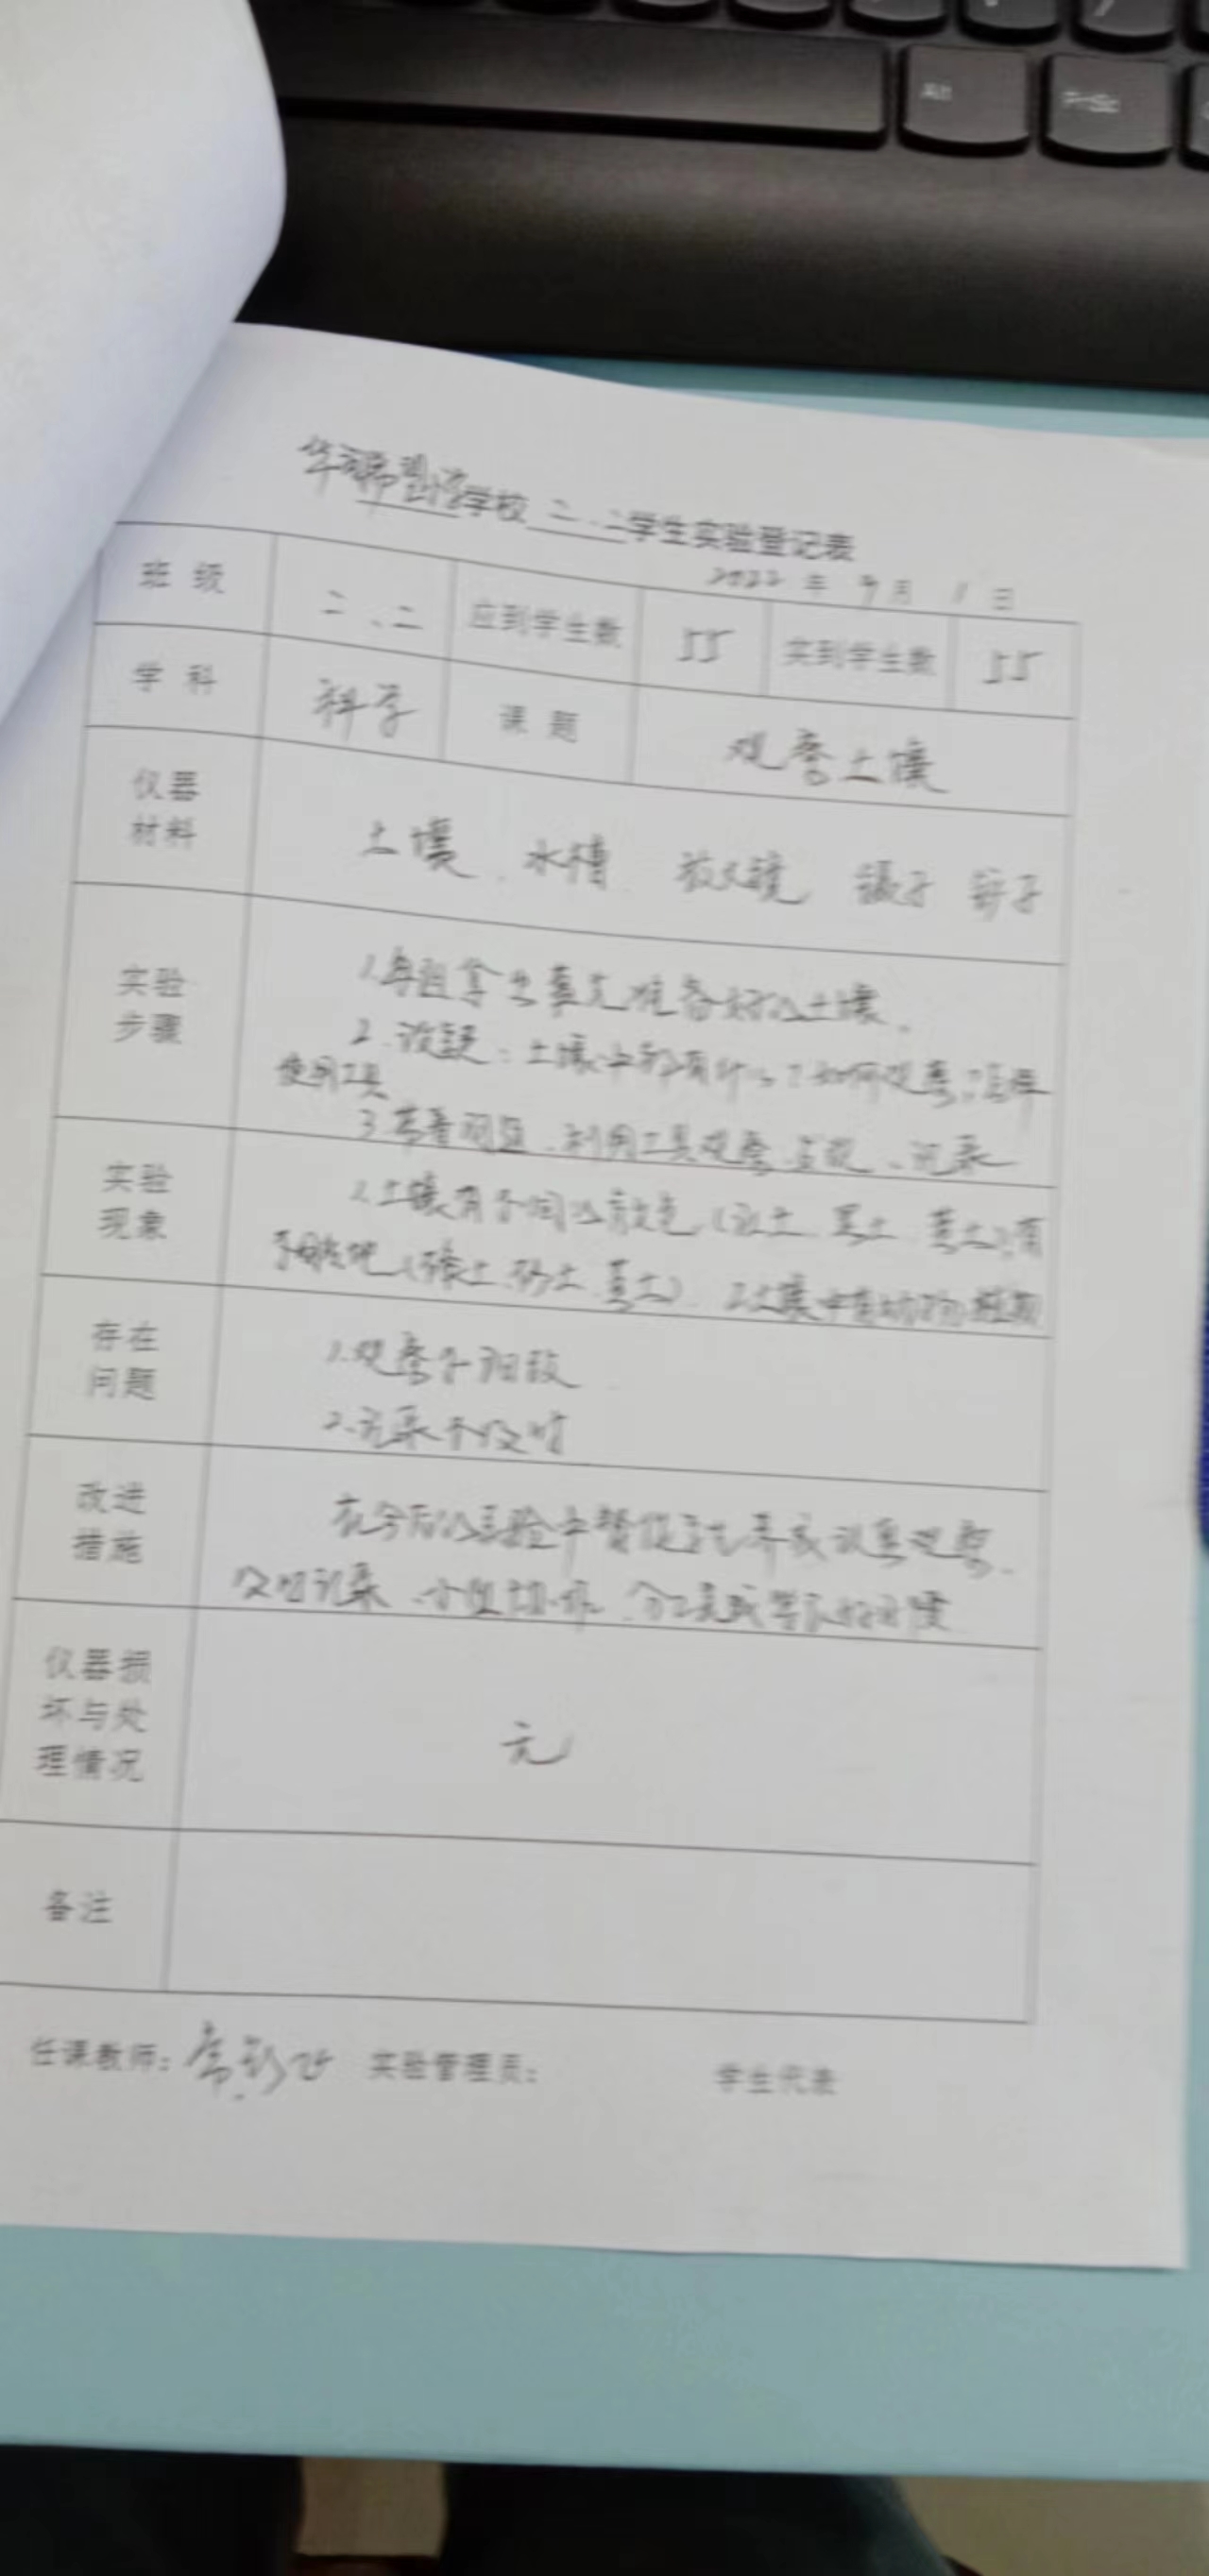 Alt
PrtSc
希望小学学校 二、二学生实验登记表
2022 年 9 月 1 日
班 级 二、二 应到学生数 55 实到学生数 55
学 科 科学 课 题 观察土壤
仪器
材料
土壤 、水槽 放大镜 镊子
实验
步骤
1.每组拿出事先准备好的土壤。
2.设疑:土壤中都有什么?如何观察?怎样
使用工具
3.带着问题、利用工具观察、记录
实验
现象
1.土壤有不同的颜色(红土、黑土、黄土)有
2.土壤中有动物
存在
问题
1.观察不细致
2.记录不及时
改进
措施
在今后的实验中督促学生养成认真观察、
及时记录、小组协作、分工
仪器损
坏与处
理情况
无
备注
任课教师: 实验管理员: 学生代表